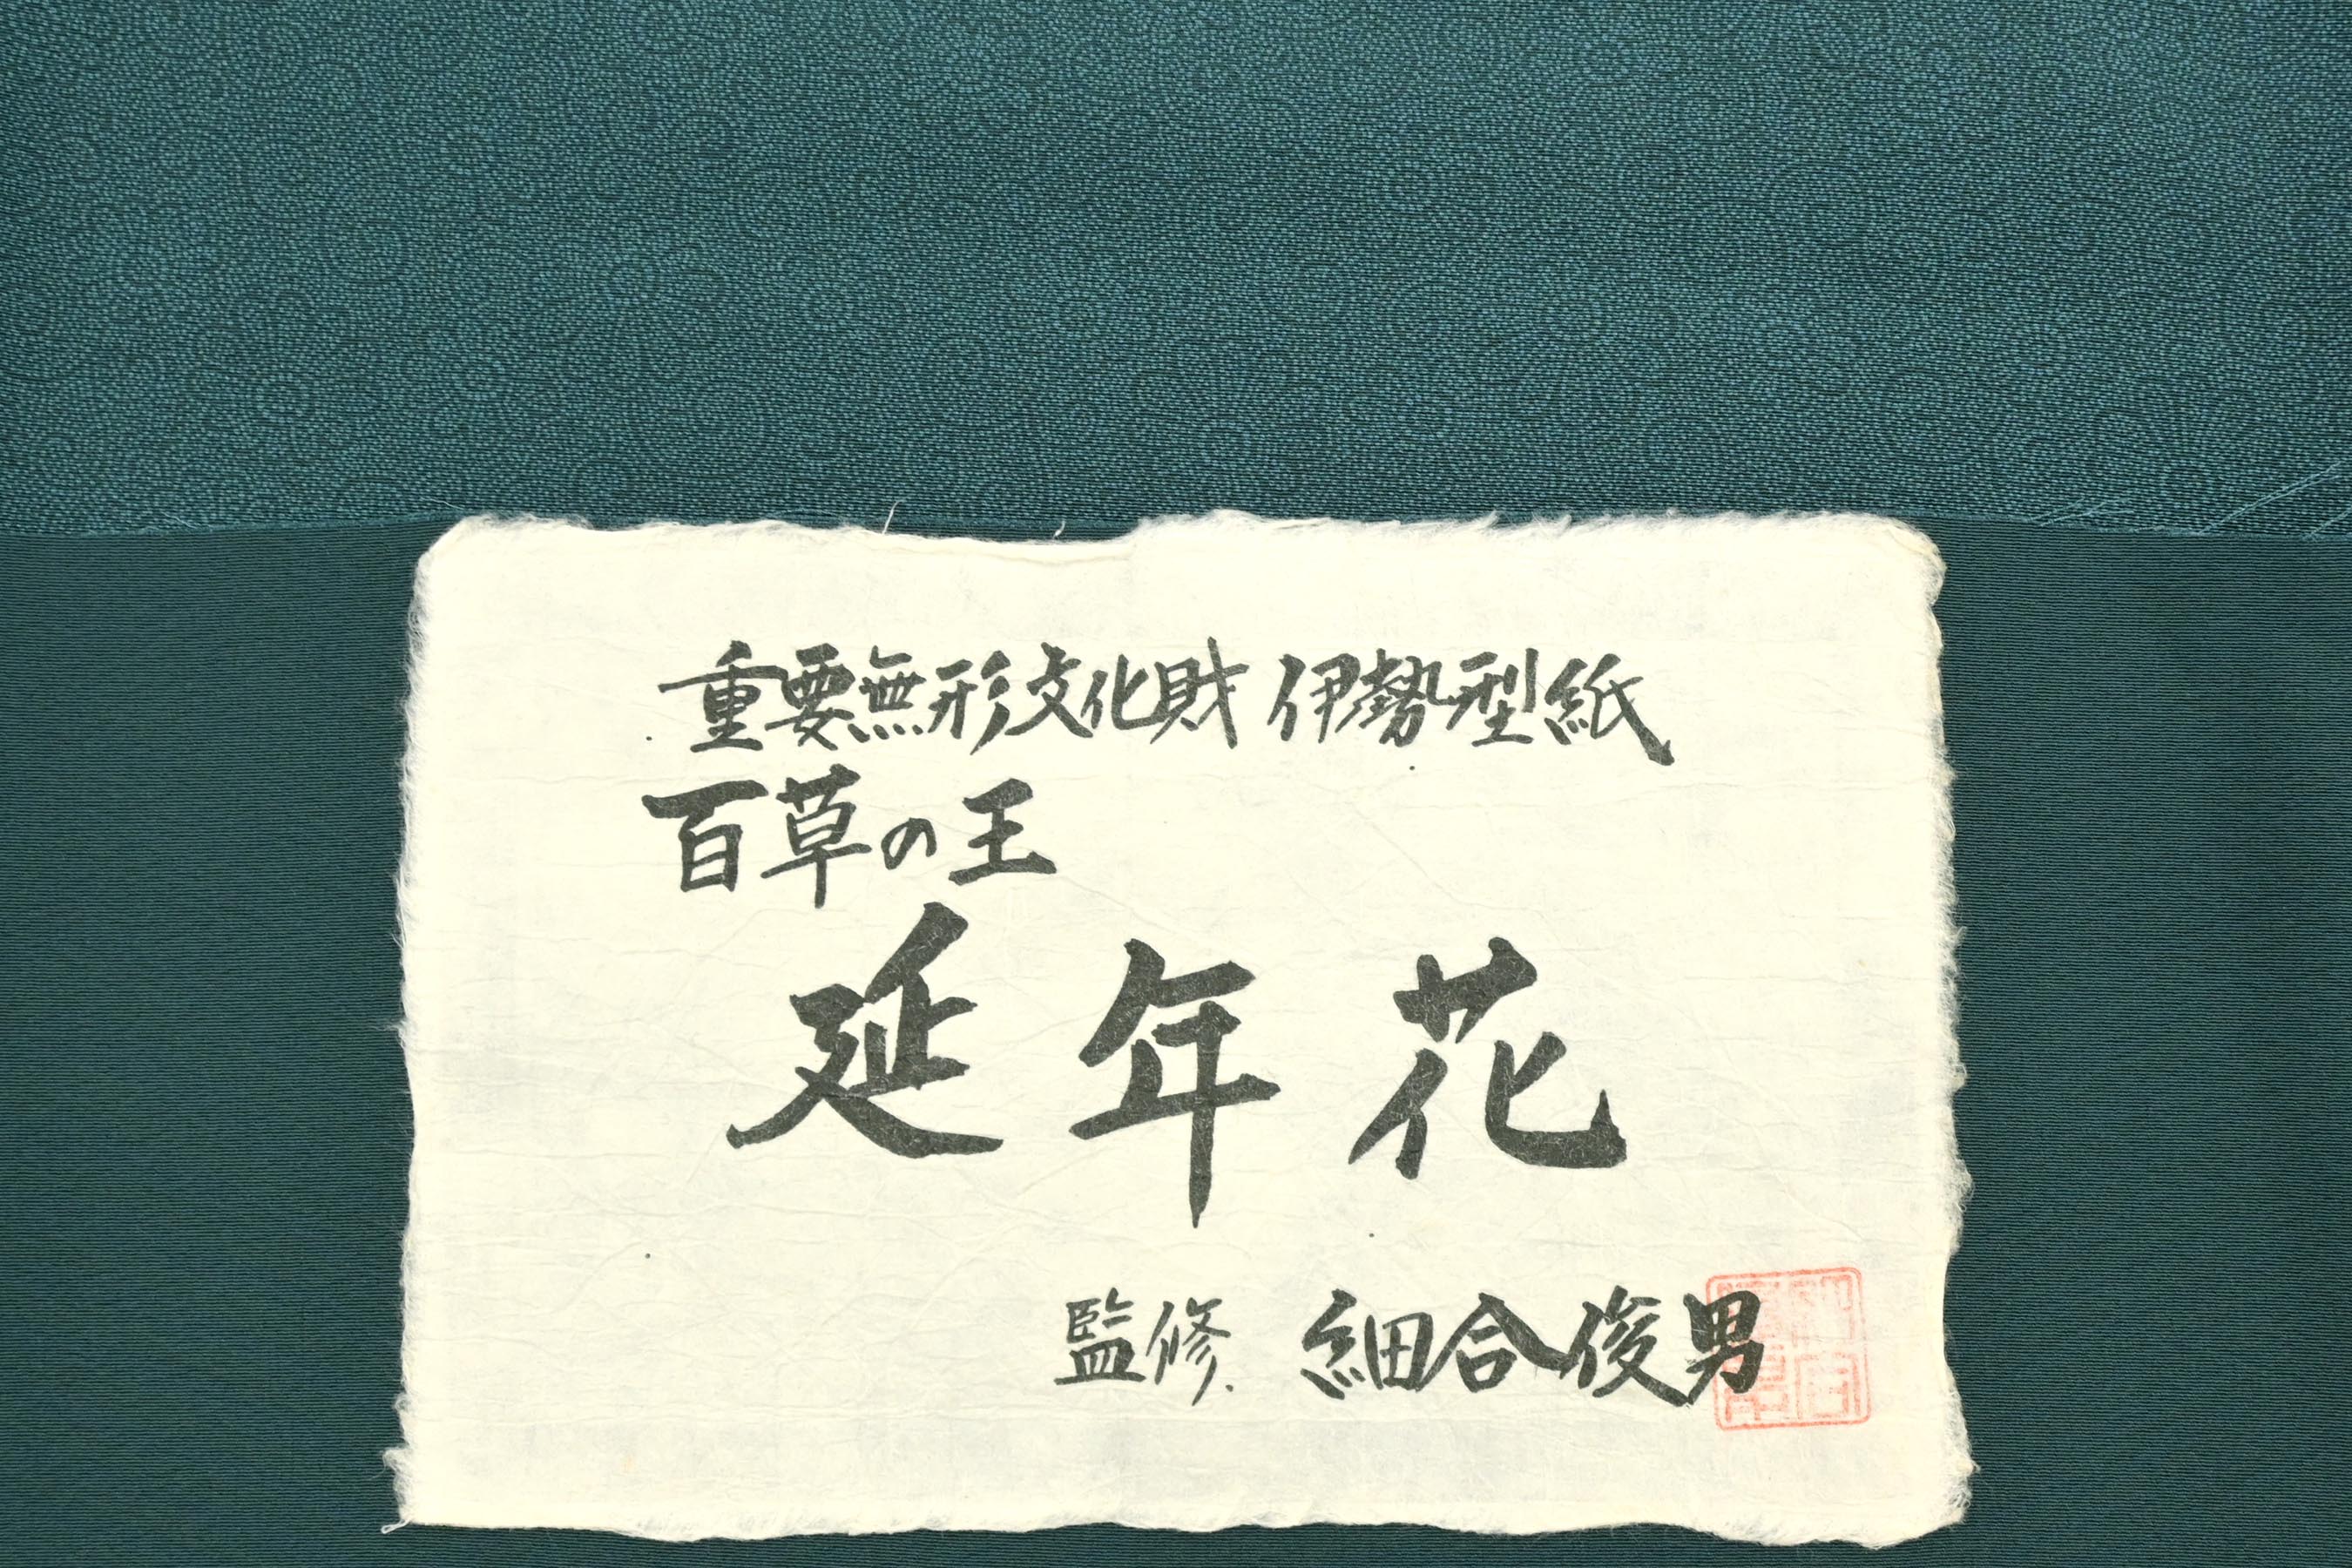 重要無形文化財 伊勢型紙
百草の王
延年花
監修 細合俊男